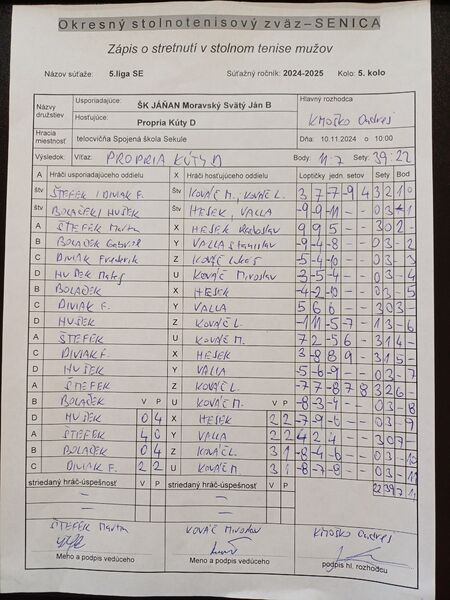 Okresný stolnotenisový zväz–SENICA
Zápis o stretnutí v stolnom tenise mužov
Názov súťaže: 5.liga SE Súťažný ročník: 2024-2025 Kolo: 5. kolo
Názvy družstiev Usporiadajúce: ŠK JÁŇAN Moravský Svätý Ján B Hlavný rozhodca
Hosťujúce: Propria Kúty D KMOŠKO Ondrej
Hracia miestnosť telocvičňa Spojená škola Sekule Dňa: 10.11.2024 o 10:00
Výsledok: Víťaz: PROPRIA KÚTY D Body: 11:7 Sety: 39:22
A Hráči usporiadajúceho oddielu X Hráči hosťujúceho oddielu Loptičky jedn. setov Sety Bod
štv ŠTEFEK I DIVIAK F. štv KOVÁČ M., KOVÁČ L. 3 7 -7 -9 4 3 2 1 0
štv BOLAČEK I HUŠEK štv HESEK, VALLA -9 -9 -11 - - 0 3 - 1
A ŠTEFEK Martin X HESEK 9 9 5 - - 3 0 2 -
B BOLAČEK Gabriel Y VALLA Stanislav -9 -4 -8 - - 0 3 - 2
C DIVIAK Frederik Z KOVÁČ Lukáš -5 -4 -10 - - 0 3 - 3
D HUŠEK Matej U KOVÁČ Miroslav -3 -5 -4 - - 0 3 - 4
B BOLAČEK X HESEK -4 -2 -10 - - 0 3 - 5
C DIVIAK F. Y VALLA 5 6 6 - - 3 0 3 -
D HUŠEK Z KOVÁČ L. -11 -5 -7 - 1 3 - 6
A ŠTEFEK U KOVÁČ M. 7 2 -5 6 - 3 1 4 -
C DIVIAK F. X HESEK -3 8 8 9 - 3 1 5 -
D HUŠEK Y VALLA -5 -6 -9 - - 0 3 - 7
A ŠTEFEK Z KOVÁČ L. -7 7 -8 7 8 3 2 6 -
B BOLAČEK V P U KOVÁČ M. V P -8 -3 -9 - - 0 3 - 8
D HUŠEK 0 4 X HESEK 2 2 -7 -9 -6 - - 0 3 - 9
A ŠTEFEK 4 0 Y VALLA 2 2 4 2 4 - - 3 0 7 -
B BOLAČEK 0 4 Z KOVÁČ L. 3 1 -8 -4 -6 - - 0 3 - 10
C DIVIAK F. 2 2 U KOVÁČ M. 3 1 -8 -7 -8 - - 0 3 - 11
striedaný hráč-úspešnosť V P striedaný hráč-úspešnosť V P 22 39 7 11
ŠTEFEK Martin KOVÁČ Miroslav KMOŠKO Ondrej
Meno a podpis vedúceho Meno a podpis vedúceho podpis hl. rozhodcu